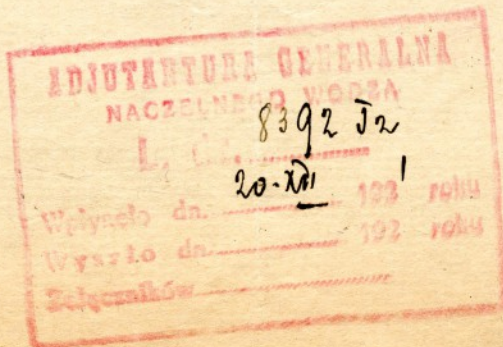 ADJUTANTURA GENERALNA
NACZELNEGO WODZA
8392
L.
20-XII
Wpłynęło dn. 192 roku
Wyszło dn. 192 roku
Załączników